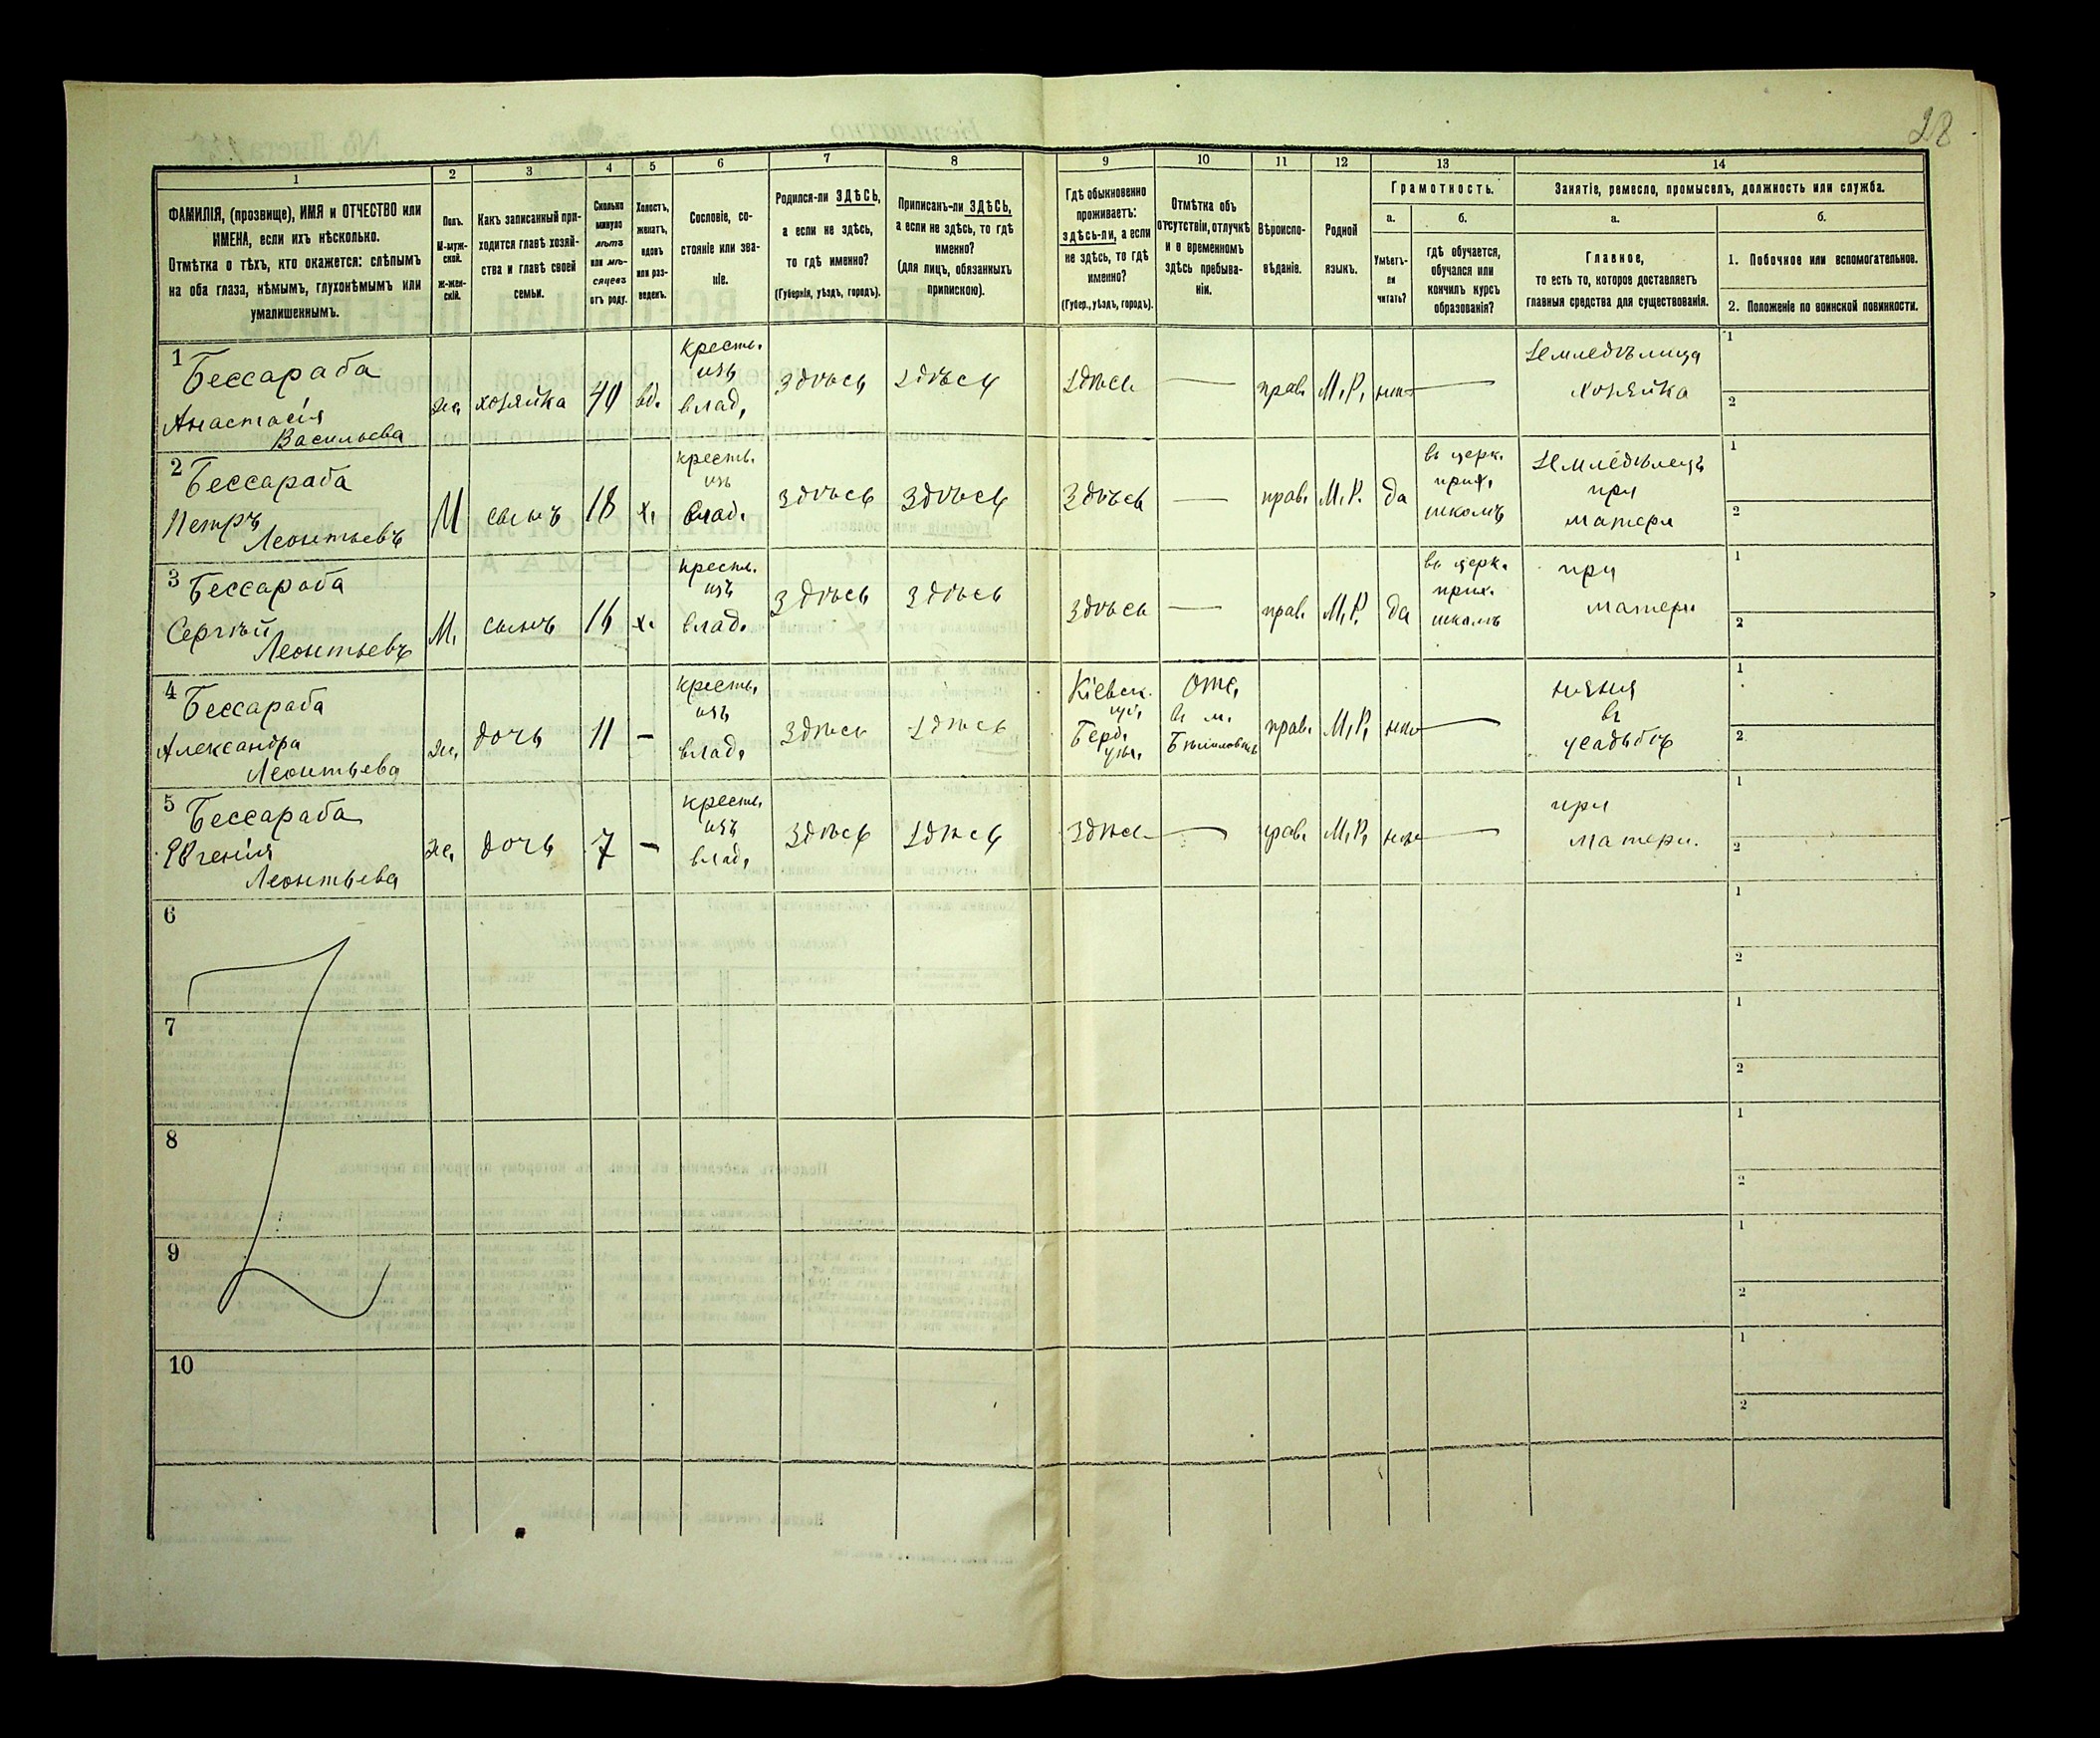 28
1
2
3
4
5
6
7
8
9
10
11
12
13
14
ФАМИЛІЯ, (прозвище), ИМЯ и ОТЧЕСТВО или
ИМЕНА, если ихъ нѣсколько.
Отмѣтка о тѣхъ, кто окажется: слѣпымъ
на оба глаза, нѣмымъ, глухонѣмымъ или
умалишеннымъ.
Полъ.
М-муж-
ской.
Ж-жен-
скій.
Какъ записанный при-
ходится главѣ хозяй-
ства и главѣ своей
семьи.
Сколько
минуло
лѣтъ
или мѣ-
сяцевъ
отъ роду.
Холостъ,
женатъ,
вдовъ
или раз-
веденъ.
Сословіе, со-
стояніе или зва-
ніе.
Родился-ли ЗДѢСЬ,
а если не здѣсь,
то гдѣ именно?
(Губернія, уѣздъ, городъ).
Приписанъ-ли ЗДѢСЬ,
а если не здѣсь, то гдѣ
именно?
(для лицъ, обязанныхъ
припискою).
Гдѣ обыкновенно
проживаетъ:
здѣсь-ли, а если
не здѣсь, то гдѣ
именно?
(Губер., уѣздъ, городъ).
Отмѣтка объ
отсутствіи, отлучкѣ
и о временномъ
здѣсь пребыва-
ніи.
Вѣроиспо-
вѣданіе.
Родной
языкъ.
Грамотность.
а.
б.
Умѣетъ-
ли
читать?
гдѣ обучается,
обучался или
кончилъ курсъ
образованія?
Занятіе, ремесло, промыселъ, должность или служба.
а.
б.
Главное,
то есть то, которое доставляетъ
главныя средства для существованія.
1. Побочное или вспомогательное.
2. Положеніе по воинской повинности.
1 Бессараба
Анастасія
Васильева
ж. хозяйка 40 вд.
крестн.
изъ
влад.
здѣсь здѣсь здѣсь — прав. М.Р. нѣт —
Земледѣлица
хозяйка
1
2
2 Бессараба
Петръ
Леонтьевъ
М сынъ 18 х.
крестн.
изъ
влад.
здѣсь здѣсь здѣсь — прав. М.Р. да
въ церк.
прих.
школѣ
Земледѣлецъ
при
матери
1
2
3 Бессараба
Сергѣй
Леонтьевъ
М. сынъ 16 х.
крестн.
изъ
влад.
здѣсь здѣсь здѣсь — прав. М.Р. да
въ церк.
прих.
школѣ
при
матери
1
2
4 Бессараба
Александра
Леонтьева
ж. дочь 11 -
крестн.
изъ
влад.
здѣсь здѣсь
Кіевск.
губ.
Берд.
уѣз.
Отс.
въ м.
прав. М.Р. нѣт —
няня
въ
усадьбѣ
1
2
5 Бессараба
Евгенія
Леонтьева
ж. дочь 7 -
крестн.
изъ
влад.
здѣсь здѣсь здѣсь — прав. М.Р. нѣт —
при
матери.
1
2
6
1
2
7
1
2
8
1
2
9
1
2
10
1
2